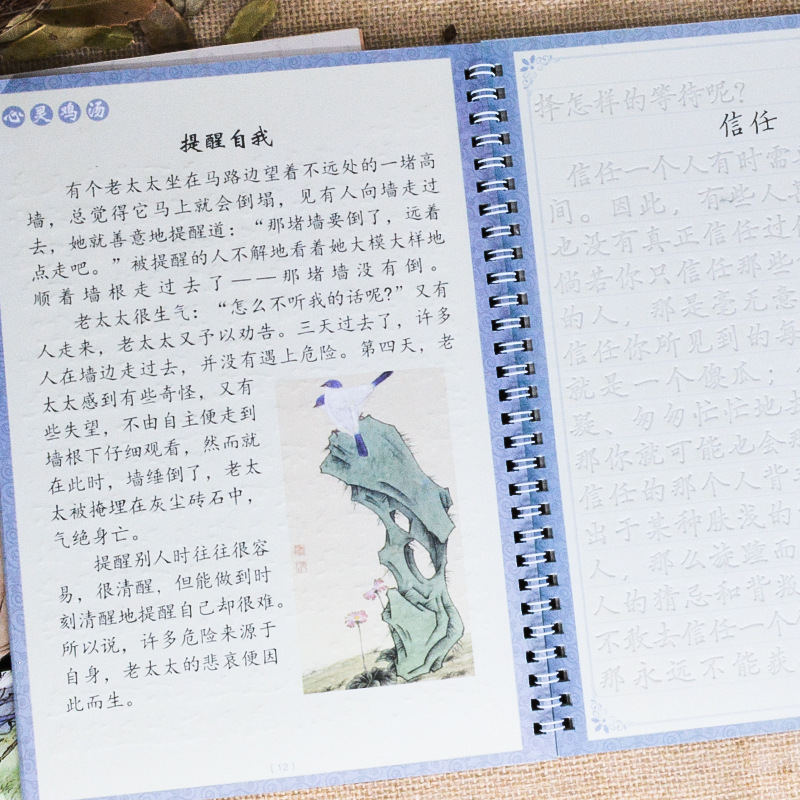 心灵鸡汤
提醒自我
有个老太太坐在马路边望着不远处的一堵高
墙，总觉得它马上就会倒塌，见有人向墙走过
去，她就善意地提醒道：“那堵墙要倒了，远着
点走吧。”被提醒的人不解地看着她大模大样地
顺着墙根走过去了——那堵墙没有倒。
老太太很生气：“怎么不听我的话呢？”又有
人走来，老太太又予以劝告。三天过去了，许多
人在墙边走过去，并没有遇上危险。第四天，老
太太感到有些奇怪，又有
些失望，不由自主便走到
墙根下仔细观看，然而就
在此时，墙缍倒了，老太
太被掩埋在灰尘砖石中，
气绝身亡。
提醒别人时往往很容
易，很清醒，但能做到时
刻清醒地提醒自己却很难。
所以说，许多危险来源于
自身，老太太的悲哀便因
此而生。
(12)
择怎样的等待呢？
信任
信任一个人有时需
间。因此，有些人
也没有真正信任过
倘若你只信任那些
的人，那是毫无意
信任你所见到的每
就是一个傻瓜，
疑，匆匆忙忙地去
那你就可能也会
信任的那个人背
出于某种肤浅的
人，那么旋踵而
人的猜忌和背叛
不敢去信任一个
那永远不能获